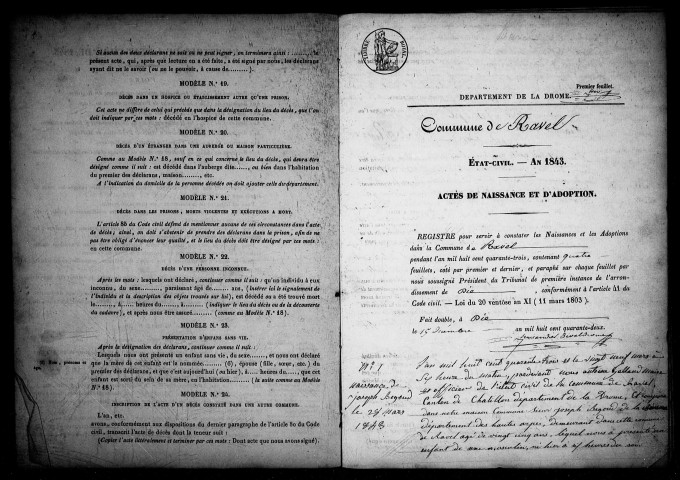 Si aucun des deux déclarans ne sait ou ne peut signer, on terminera ainsi : le
présent acte, qui, après que lecture en a été faite, a été signé par nous, les déclarans
ayant dit ne le savoir (ou ne le pouvoir, à cause de........).
MODÈLE N.° 19.
DÉCÈS DANS UN HOSPICE OU ÉTABLISSEMENT AUTRE QU'UNE PRISON.
Cet acte ne diffère de celui qui précède que dans la désignation du lieu du décès, que l'on
doit indiquer par ces mots : décédé en l'hospice de cette commune.
MODÈLE N.° 20.
DÉCÈS D'UN ÉTRANGER DANS UNE AUBERGE OU MAISON PARTICULIÈRE.
Comme au Modèle N.° 18, sauf en ce qui concerne le lieu du décès, qui devra être
désigné comme il suit : est décédé dans l'auberge dite.., ou bien dans l'habitation
du premier des déclarans, maison...., etc.
A l'indication du domicile de la personne décédée on doit ajouter celle du département.
MODÈLE N.° 21.
DÉCÈS DANS LES PRISONS, MORTS VIOLENTES ET EXÉCUTIONS A MORT.
L'article 85 du Code civil défend de mentionner aucune de ces circonstances dans l'acte
de décès; ainsi, on doit s'abstenir de prendre des déclarans dans la prison, afin de n'être
pas obligé d'énoncer leur qualité, et le lieu du décès doit être désigné par ces mots :
en cette commune.
MODÈLE N.° 22.
DÉCÈS D'UNE PERSONNE INCONNUE.
Après les mots : lesquels ont déclaré, continuer comme il suit : qu'un individu à eux
inconnu, du sexe...... paraissant âgé de...... ans, (insérer ici le signalement de
l'individu et la description des objets trouvés sur lui), est décédé ou a été trouvé mort
à...... heures du......, (indiquer le lieu du décès ou de la découverte du
cadavre), et après nous être assuré (comme au Modèle N.° 18).
MODÈLE N.° 23.
PRÉSENTATION D'ENFANS SANS VIE.
Après la désignation des déclarans, continuer comme il suit :
Lesquels nous ont présenté un enfant sans vie, du sexe......, et nous ont déclaré
que la mère de cet enfant est la nommée........ (6), épouse (fille, sœur, etc.) du
premier des déclarans, et qu'hier (ou aujourd'hui), à...... heures du......, que cet
enfant est sorti du sein de sa mère, en l'habitation...... (la suite comme au Modèle
N.° 18).
MODÈLE N.° 24.
INSCRIPTION DE L'ACTE D'UN DÉCÈS CONSTATÉ DANS UNE AUTRE COMMUNE.
L'an, etc.
avons, conformément aux dispositions du dernier paragraphe de l'article 80 du Code
civil, transcrit l'acte de décès dont la teneur suit :
(Copier l'acte littéralement et terminer par ces mots : Dont acte que nous avons signé).
Premier feuillet.
DÉPARTEMENT DE LA DROME.
Commune de Ravel
ÉTAT-CIVIL. — AN 1843.
ACTES DE NAISSANCE ET D'ADOPTION.
REGISTRE pour servir à constater les Naissances et les Adoptions
dans la Commune de Ravel
pendant l'an mil huit cent quarante-trois, contenant quatre
feuillets, coté par premier et dernier, et paraphé sur chaque feuillet par
nous soussigné Président du Tribunal de première instance de l'arron-
dissement de Die, conformément à l'article 41 du
Code civil. — Loi du 20 ventôse an XI (11 mars 1803).
Fait double, à Die
le 15 Décembre an mil huit cent quarante-deux.
N.° 1
naissance de
joseph
le 29 mars
1843
L'an mil huit cent quarante trois et le vingt neuf mars à
six heures du matin, pardevant nous Galland maire
et officier de l'état civil de la commune de Ravel,
Canton de Chatillon département de la Drome, est comparu
dans notre maison Commune sieur joseph
département des hautes alpes, demeurant dans cette commune
de Ravel agé de vingt cinq ans, lequel nous a présenté un
enfant de sexe masculin, né hier à heures du soir